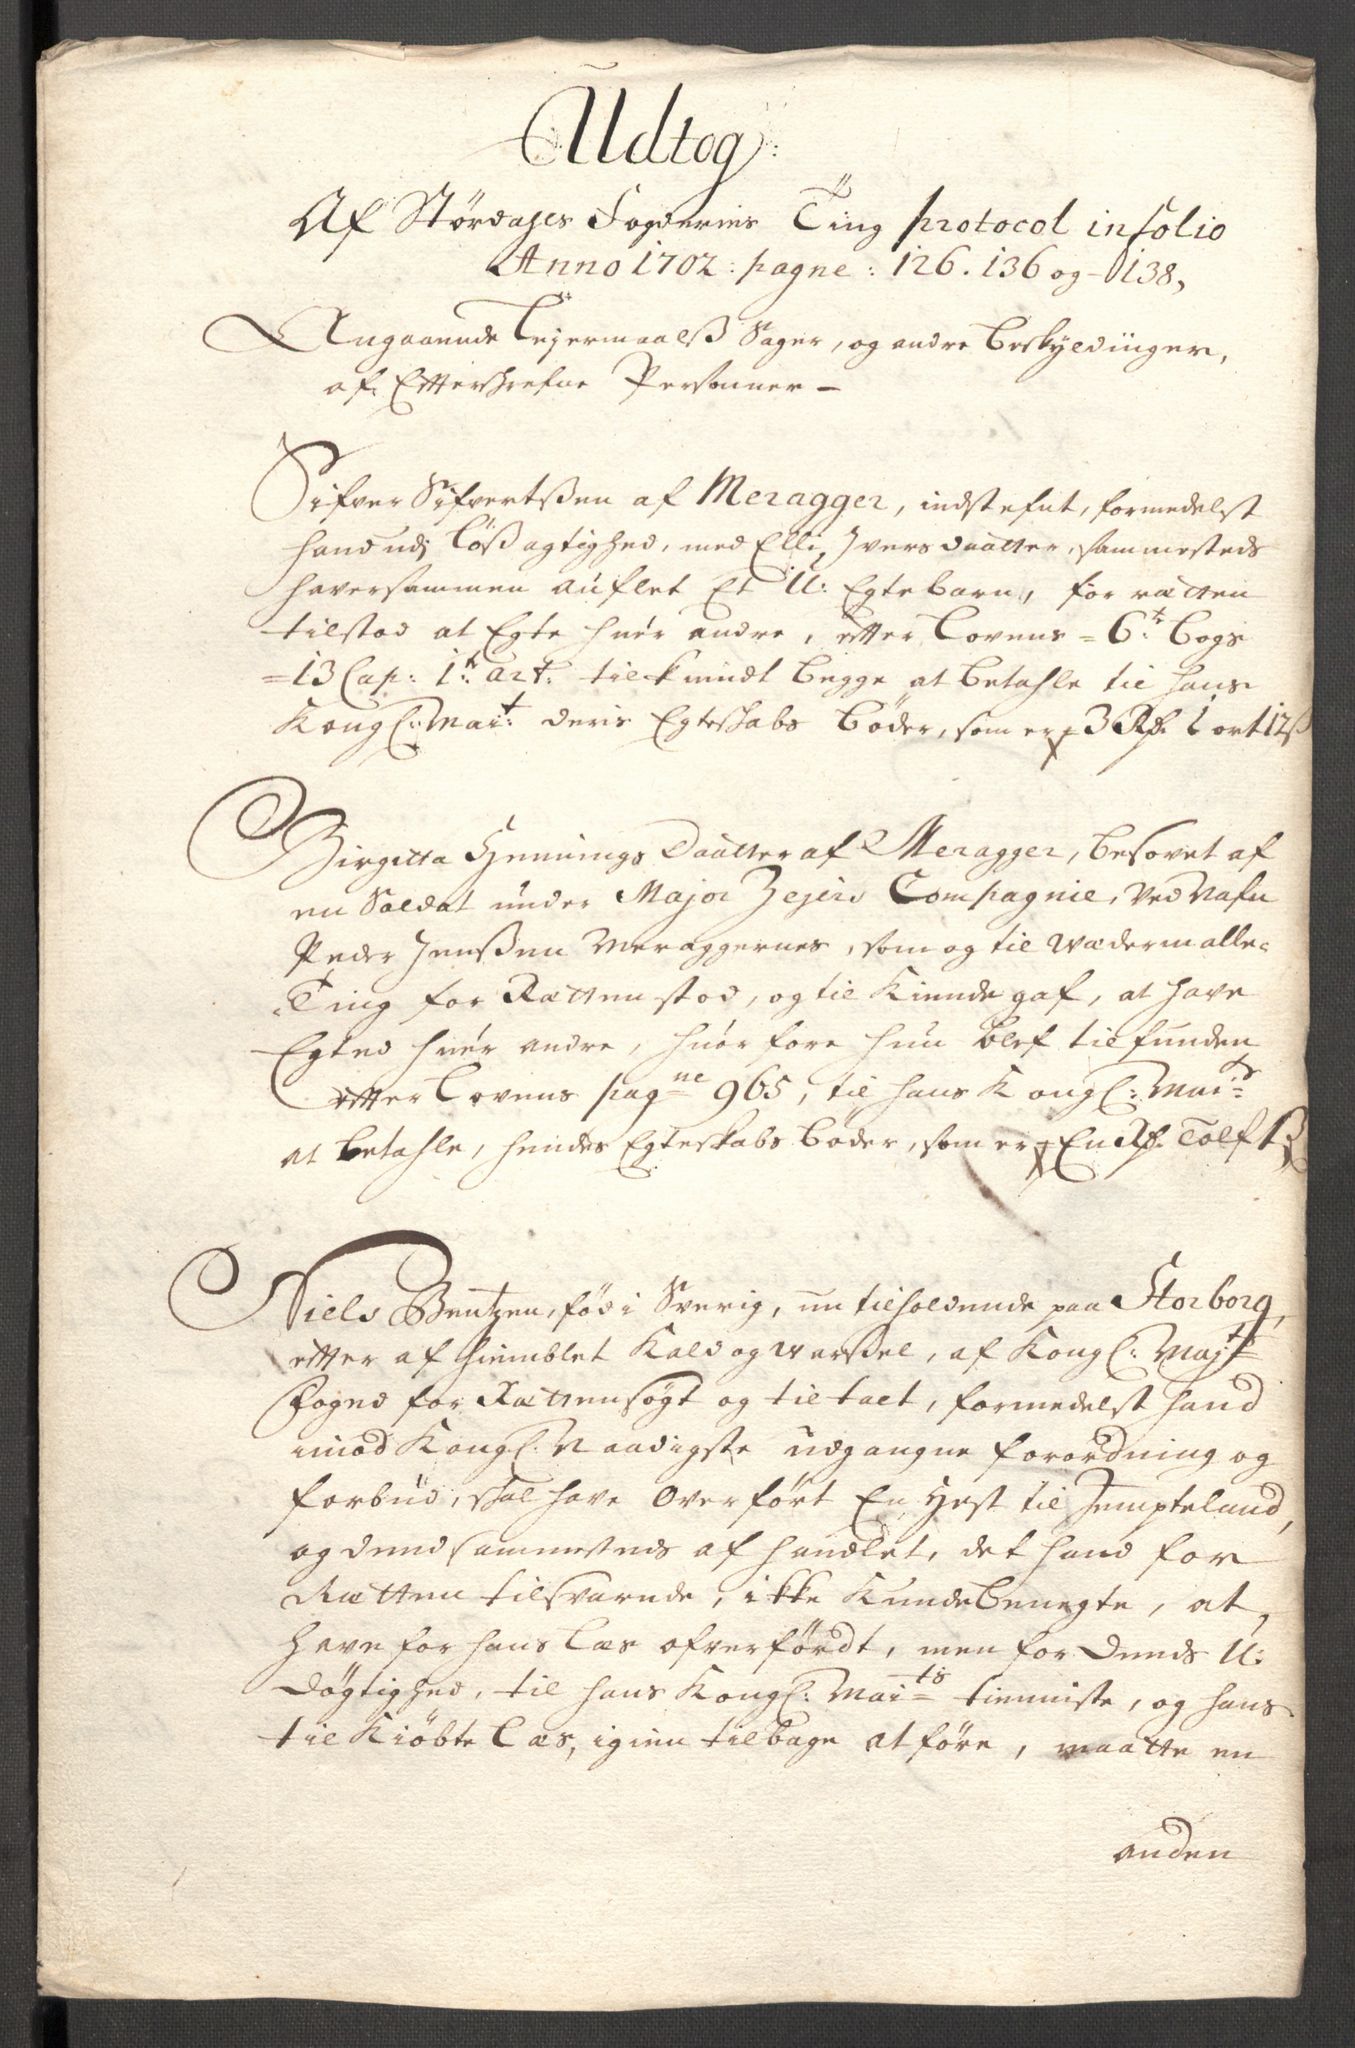 Udtog:
Af Størdahls Fogderies Ting protocol in folio
Anno 1702: pagne: 126. 136 og 138,
Angaaende Lejermaalß Sager, og andre beskyldinger,
af Efterskrefne Personner –
Sifver Sifvertßen af Meragger, indstefnt, formedelst
hand udj Løßagtighed, med Elli Iversdaatter, sammesteds
haver sammen auflet Et U: Egte barn, for rætten
tilstod at Egte hver andre, etter Lovens = 6.te Bogs
= 13 Cap: 1.te Art: tilkiendt begge at betahle til hans
Kongl: Mait: deris Egteskabs bøder, som er 3 Rdr 1 ort 12 ß
Birgitta Hennings Daatter af Meragger, besovet af
en Soldat under Major Zejers Compagnie, ved Nafn
Peder Jenßen Meraggernes, som og til Wædermalle-
Ting for Rætten stod, og til Kiende gaf, at have
Egted hver andre, huorfore hun blef tilfunden
etter Lovens pagne 965, til hans Kongl: Maits
at betahle, hendes Egteskabs bøder, som er En Rdr Tolf ß
Niels Bentzen, fød i Sverig, nu tilholdende paa Storborg,
etter af hiemblet Kald og warßel, af Kongl: Majts
Foged for Rætten søgt og tiltalt, formedelst hand
imod Kongl: Naadigste udgangne forordning og
forbud, skal have Overført En Hest til Jempteland,
og dend sammesteds af handlet, det hand for
Rætten tilsvarede, ikke Kunde benegte, at
have for hans Læs ofverfördt, men for dends U:
døgtighed, til hans Kongl: Maits tienniste, og hans
til Kiøbte Læs, igien tilbage at føre, maatte en
anden